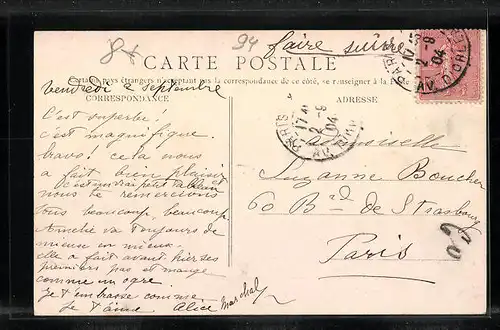 8x
94
faire suivre
CARTE POSTALE
Certains pays étrangers n'acceptent pas les correspondances de ce côté, se renseigner à la
vendredi 2 septembre
CORRESPONDANCE
ADRESSE
PARIS
17
2 - 9
04
AV. D'ORL
PARIS
17
2 - 9
04
AV.
C'est superbe!
c'est magnifique.
bravo! cela nous
a fait bien plaisir
c'est un vrai petit tableau
nous te remercions
tous beaucoup, beaucoup
Amélie va toujours de
mieux en mieux.
elle a fait avant hier ses
premiers pas et mange
comme un ogre
Je t'embrasse comme
je t'aime. Alice Marchal
Suzanne Boucher
60 Bd de Strasbourg
Paris